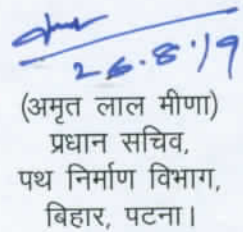 26.8.19
(अमृत लाल मीणा)
प्रधान सचिव,
पथ निर्माण विभाग,
बिहार, पटना।